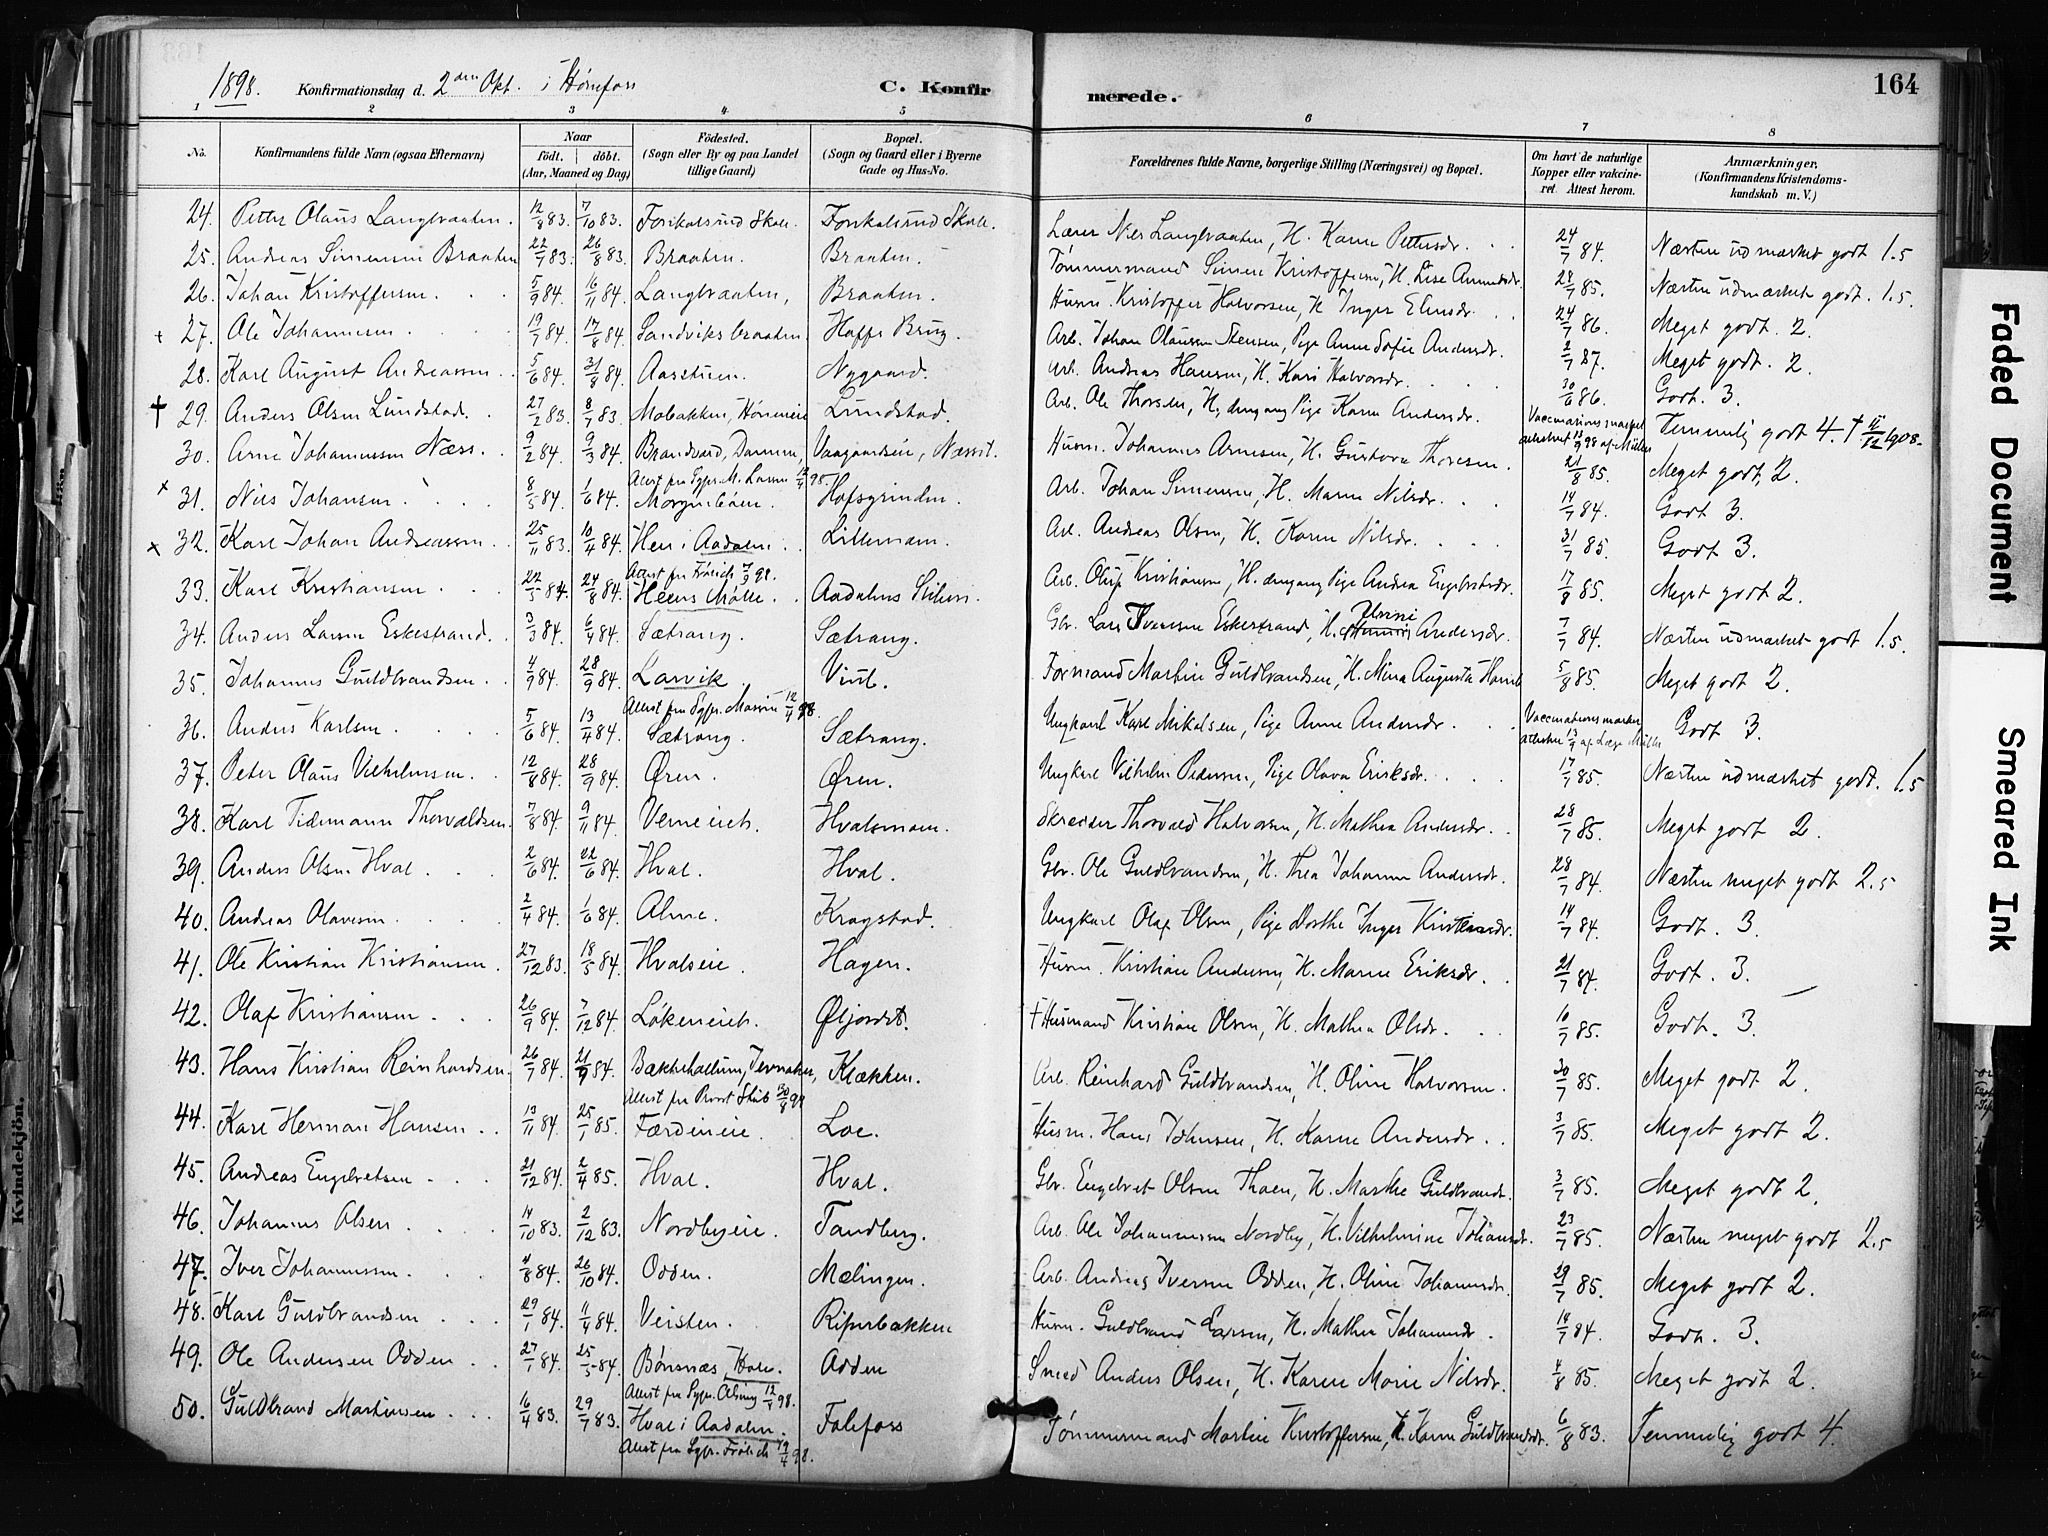 1898. Konfirmationsdag d. 2den Okt. i Hønefoss C. Konfirmerede. 164
1 2 3 4 5 6 7 8
No. Konfirmandens fulde Navn (ogsaa Efternavn) Naar födt. döbt. (Aar, Maaned og Dag) Födested. (Sogn eller By og paa Landet tillige Gaard) Bopæl. (Sogn og Gaard eller i Byerne Gade og Hus-No. Forældrenes fulde Navne, borgerlige Stilling (Næringsvei) og Bopæl. Om havt de naturlige Kopper eller vakcineret. Attest herom. Anmærkninger. (Konfirmandens Kristendomskundskab m. V.)
24. Petter Olaus Langbraaten. 12/8 83. 7/10 83. Fonkalsrud Skole. Fonkalsrud Skole. Lærer Nils Langbraaten, H. Karen Pettersdr. 24/7 84. Næsten udmærket godt 1.5
25. Andreas Simensen Braaten 22/7 83. 26/8 83. Braaten. Braaten. Tømmermand Simen Kristoffersen, H. Lise Amundsdr. 28/7 85. Næsten udmærket godt. 1.5.
26. Johan Kristoffersen. 5/9 84. 16/11 84. Langbraaten, Braaten. Husm. Kristoffer Halvorsen, H. Inger Elensdr. 24/7 86. Meget godt. 2.
+ 27. Ole Johannesen. 19/7 84. 17/8 84. Sandviksbraaten. Hoffs Brug. Arb. Johan Olausen Stensen, Pige Anne Sofie Andersdr. 2/7 87. Meget godt. 2.
28. Karl August Andreassen. 5/6 84. 31/8 84. Aasstuen. Nygaard. Arb. Andreas Hansen, H. Kari Halvorsdr. 30/6 86. Godt. 3.
† 29. Anders Olsen Lundstad. 27/2 83. 8/7 83. Mobakken, Hønneie Lundstad. Arb. Ole Thorsen, H., dengang Pige Karen Andersdr. Vaccinationsmærket attesteret 13/9 98 af Müller Temmelig godt 4. † 11/12 1908.
30. Arne Johannessen Næss. 9/2 84. 9/3 84. Brandvard, Drammen, Vaagaardseie, Næsset. Husm. Johannes Arnesen, H. Gustava Thoresen. 21/8 85. Meget godt, 2.
Attest fra Sgpr. M. Larsen 12/4 98.
x 31. Nils Johansen. 8/5 84. 1/6 84. Morgenbøen. Hofsgrinden. Arb. Johan Simensen, H. Maren Nilsdr. 14/7 84. Godt 3.
x 32. Karl Johan Andreassen. 25/11 83. 10/4 84. Hen i Aadalen. Lillemoen. Arb. Andreas Olsen, H. Karen Nilsdr. 31/7 85. Godt 3.
Attest fra Frölich 7/9 98.
33. Karl Kristiansen. 22/5 84. 24/8 84. Heens Mølle. Aadalens Sliberi. Arb. Oluf Kristiansen, H. dengang Pige Andrea Engebretsdr. 17/8 85. Meget godt 2.
34. Anders Larsen Eskestrand. 3/3 84. 6/4 84. Sætrang. Sætrang. Gbr. Lars Iversen Eskestrand, H. Andersdr. 7/7 84. Næsten udmærket godt 1.5.
35. Johannes Guldbrandsen. 4/9 84. 28/9 84. Larvik. Viul. Formand Martin Guldbrandsen, H. Mina Augusta 5/8 85. Meget godt 2.
Attest fra Sgpr. 12/4 98.
36. Anders Karlsen. 5/6 84. 13/4 84. Sætrang. Sætrang. Ungkarl Karl Mikalsen, Pige Anne Andersdr. Vaccinationsmærker attesteret 13/9 af Læge Müller Godt 3.
37. Peter Olaus Vilhelmsen. 12/8 84. 28/9 84. Øren. Øren. Ungkarl Vilhelm Pedersen, Pige Olava Eriksdr. 17/7 85. Næsten udmærket godt. 1.5
38. Karl Tidemann Thorvaldsen. 7/8 84. 9/11 84. Verneieie. Hvalsmoen. Skrædder Thorvald Halvorsen, H. Mathea Andersdr. 28/7 85. Meget godt 2.
39. Anders Olsen Hval. 2/6 84. 22/6 84. Hval. Hval. Gbr. Ole Guldbrandsen, H. Thea Johanne Andersdr. 28/7 84. Næsten meget godt 2.5
40. Andreas Olavesen. 2/4 84. 1/6 84. Alme. Kragstad. Ungkarl Olaf Olsen, Pige Dorthe Inger Kristensdr. 14/7 84. Godt. 3.
41. Ole Kristian Kristiansen. 27/12 83. 18/5 84. Hvalseie. Hagen. Husm. Kristian Andersen, H. Maren Eriksdr. 21/7 84. Godt. 3.
42. Olaf Kristiansen. 26/9 84. 7/12 84. Løkeneieie. Øljordet. † Husmand Kristian Olsen, H. Mathea Olsdr. 10/7 85. Godt. 3.
43. Hans Kristian Reinhardsen. 26/7 84. 21/9 84. Bækkehallum, Jevnaker, Klækken. Arb. Reinhard Guldbrandsen, H. Oline Halvorsen. 30/7 85. Meget godt 2.
Attest fra Provst 30/8 98
44. Karl Herman Hansen. 13/11 84. 25/1 85. Færdeneie. Loe. Husm. Hans Johnsen, H. Karen Andersdr. 3/7 85. Meget godt 2.
45. Andreas Engebretsen. 21/12 84. 2/4 85. Hval. Hval. Gbr. Engebret Olsen Thoen, H. Marthe Guldbrandt. 3/7 85. Meget godt 2.
46. Johannes Olsen. 14/10 83. 2/12 83. Nordbyeie. Tandberg. Arb. Ole Johannessen Nordby, H. Vilhelmine Johansdr. 23/7 85. Næsten meget godt 2.5
47. Iver Johannessen. 4/8 84. 26/10 84. Odden. Mælingen. Arb. Andreas Iversen Odden, H. Oline Johannesdr. 29/7 85. Meget godt 2.
48. Karl Guldbrandsen. 29/1 84. 11/4 84. Veisten. Riperbakken Husm. Guldbrand Larsen, H. Mathea Johannesdr. 14/7 84. Godt. 3.
49. Ole Andersen Odden. 27/1 84. 25/5 84. Bønsnæs, Hole. Odden Smed Anders Olsen, H. Karen Marie Nilsdr. 4/8 85. Meget godt 2.
Attest fra Sgpr. 12/4 98.
50. Guldbrand Martinsen. 16/4 83. 29/7 83. Hval i Aadalen. Folefoss Tømmermand Martin Kristoffersen, H. Karen Guldbrandsdr. 6/8 83. Temmelig godt 4.
Attest fra Sgpr. Frölich 98.
Faded Document
Smeared Ink
Kvindekjön.